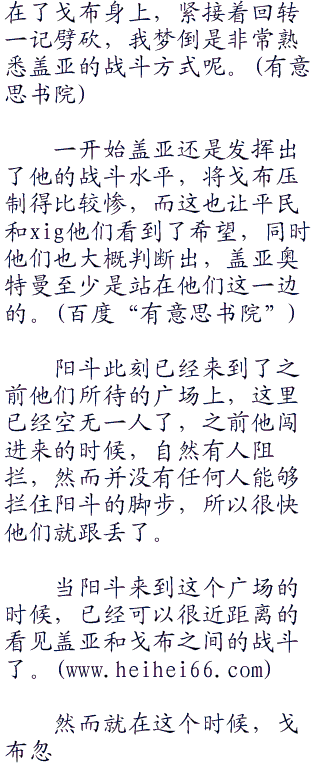 在了戈布身上，紧接着回转
一记劈砍，我梦倒是非常熟
悉盖亚的战斗方式呢。(有意
思书院)
一开始盖亚还是发挥出
了他的战斗水平，将戈布压
制得比较惨，而这也让平民
和xig他们看到了希望，同时
他们也大概判断出，盖亚奥
特曼至少是站在他们这一边
的。(百度“有意思书院”)
阳斗此刻已经来到了之
前他们所待的广场上，这里
已经空无一人了，之前他闯
进来的时候，自然有人阻
拦，然而并没有任何人能够
拦住阳斗的脚步，所以很快
他们就跟丢了。
当阳斗来到这个广场的
时候，已经可以很近距离的
看见盖亚和戈布之间的战斗
了。(www.heihei66.com)
然而就在这个时候，戈
布忽